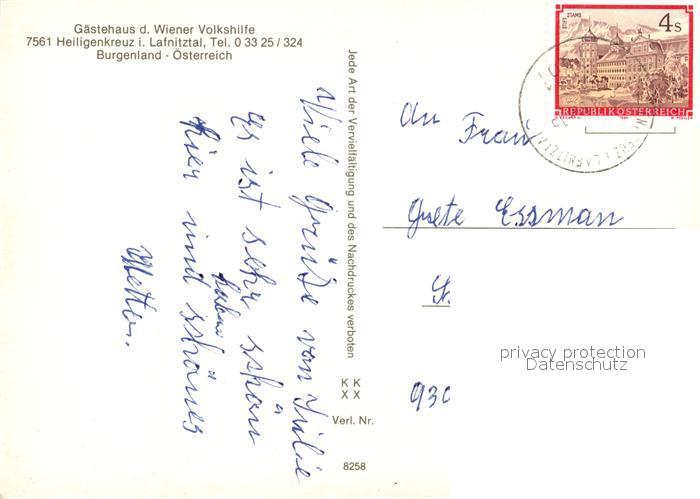 Gästehaus d. Wiener Volkshilfe
7561 Heiligenkreuz i. Lafnitztal, Tel. 0 33 25 / 324
Burgenland - Österreich
Viele Grüße von Julie
es ist sehr schön
hier und haben schönes
Wetter.
Jede Art der Vervielfältigung und des Nachdruckes verboten
K K
X X
Verl. Nr.
8258
STIFT STAMS
4 S
REPUBLIK ÖSTERREICH
An Frau
Grete Essman
930
privacy protection
Datenschutz